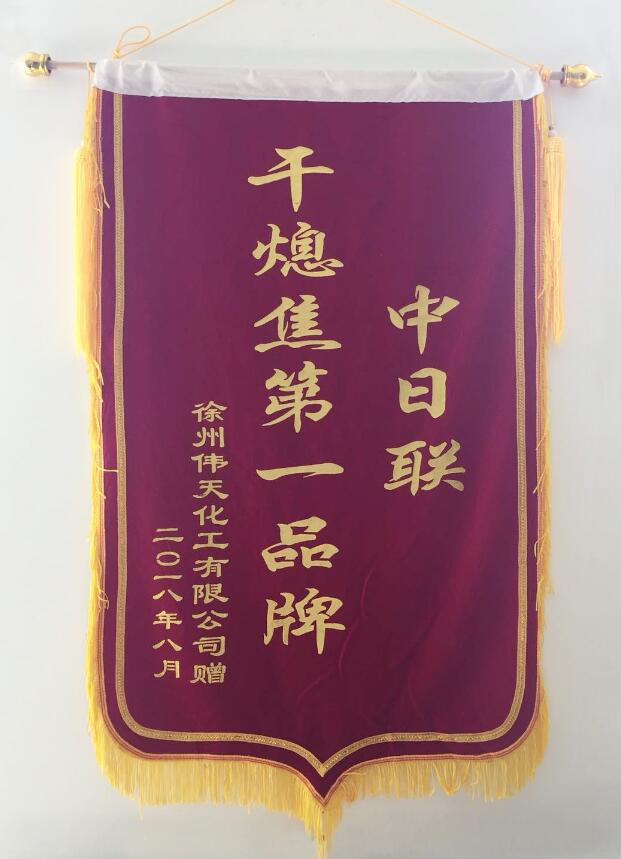 中日联
干熄焦第一品牌
徐州伟天化工有限公司赠
二〇一八年八月